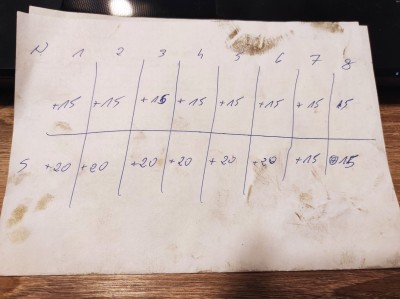 N 1 2 3 4 5 6 7 8
+15 +15 +15 +15 +15 +15 +15 15
S +20 +20 +20 +20 +20 +20 +15 15